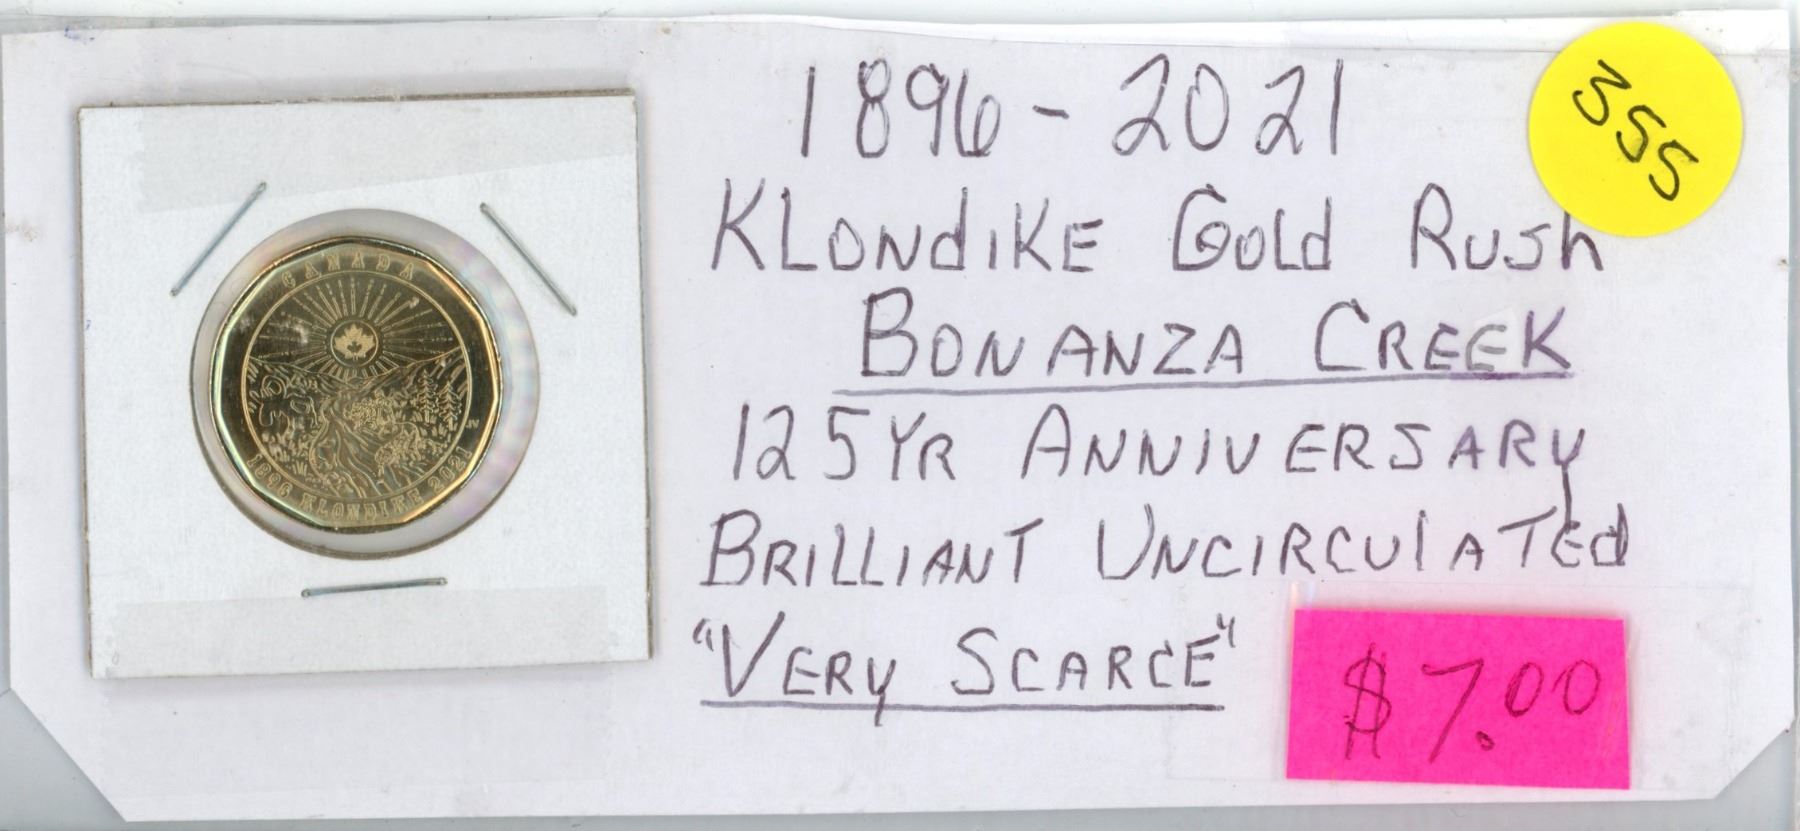 CANADA
JV
1896 KLONDIKE 2021
1896-2021
KLONdIKE GOLd RUSh
BONANZA CREEK
125 YR ANNIVERSARY
BRILLIANT UNCIRCULATEd
"VERY SCARCE"
355
$7.00